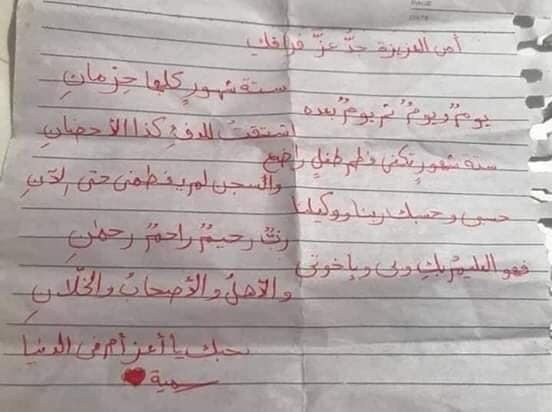 PAGE
DATE
أمي العزيزة جدُّ عزَّ فراقكِ
ستة شهورٍ كلها حِرْمانِ
يومٌ ويومٌ ثم يومٌ بعده
اشتقتُ للدفءِ كذا الأحضانِ
ستة شهورٍ تكفى فطم طفلٍ راضعٍ
والسجن لم يفطمنى حتى الآنِ
حسبى وحسبك ربنا ووكيلنا
ربٌ رحيمٌ راحمٌ رحمنِ
فهو العليمُ بكِ وبى وبإخوتى
والأهلُ والأصحابُ والخُلّانِ
بحبك يا أعز أم فى الدنيا
سمية ❤